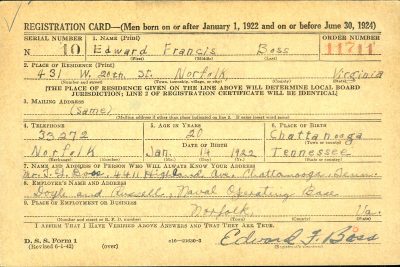 REGISTRATION CARD—(Men born on or after January 1, 1922 and on or before June 30, 1924)
SERIAL NUMBER 1. NAME (Print) ORDER NUMBER
N 10 Edward Francis Boss 11711
(First) (Middle) (Last)
2. PLACE OF RESIDENCE (Print)
431 W. 20th St. Norfolk, Virginia
(Number and street) (Town, township, village, or city) (County) (State)
[THE PLACE OF RESIDENCE GIVEN ON THE LINE ABOVE WILL DETERMINE LOCAL BOARD
JURISDICTION; LINE 2 OF REGISTRATION CERTIFICATE WILL BE IDENTICAL]
3. MAILING ADDRESS
(Same)
[Mailing address if other than place indicated on line 2. If same insert word same]
4. TELEPHONE 5. AGE IN YEARS 6. PLACE OF BIRTH
33272 20 Chattanooga
(Town or county)
DATE OF BIRTH
Norfolk Jan. 14 1922 Tennessee
(Exchange) (Number) (Mo.) (Day) (Yr.) (State or country)
7. NAME AND ADDRESS OF PERSON WHO WILL ALWAYS KNOW YOUR ADDRESS
Boss, 4411 Highland Ave. Chattanooga, Tenn.
8. EMPLOYER'S NAME AND ADDRESS
Doyle and Russell, Naval Operating Base
9. PLACE OF EMPLOYMENT OR BUSINESS
Norfolk, Va.
(Number and street or R. F. D. number) (Town) (County) (State)
I AFFIRM THAT I HAVE VERIFIED ABOVE ANSWERS AND THAT THEY ARE TRUE.
D. S. S. Form 1
(Revised 6-1-42) (over) Edward F. Boss
(Registrant's signature)